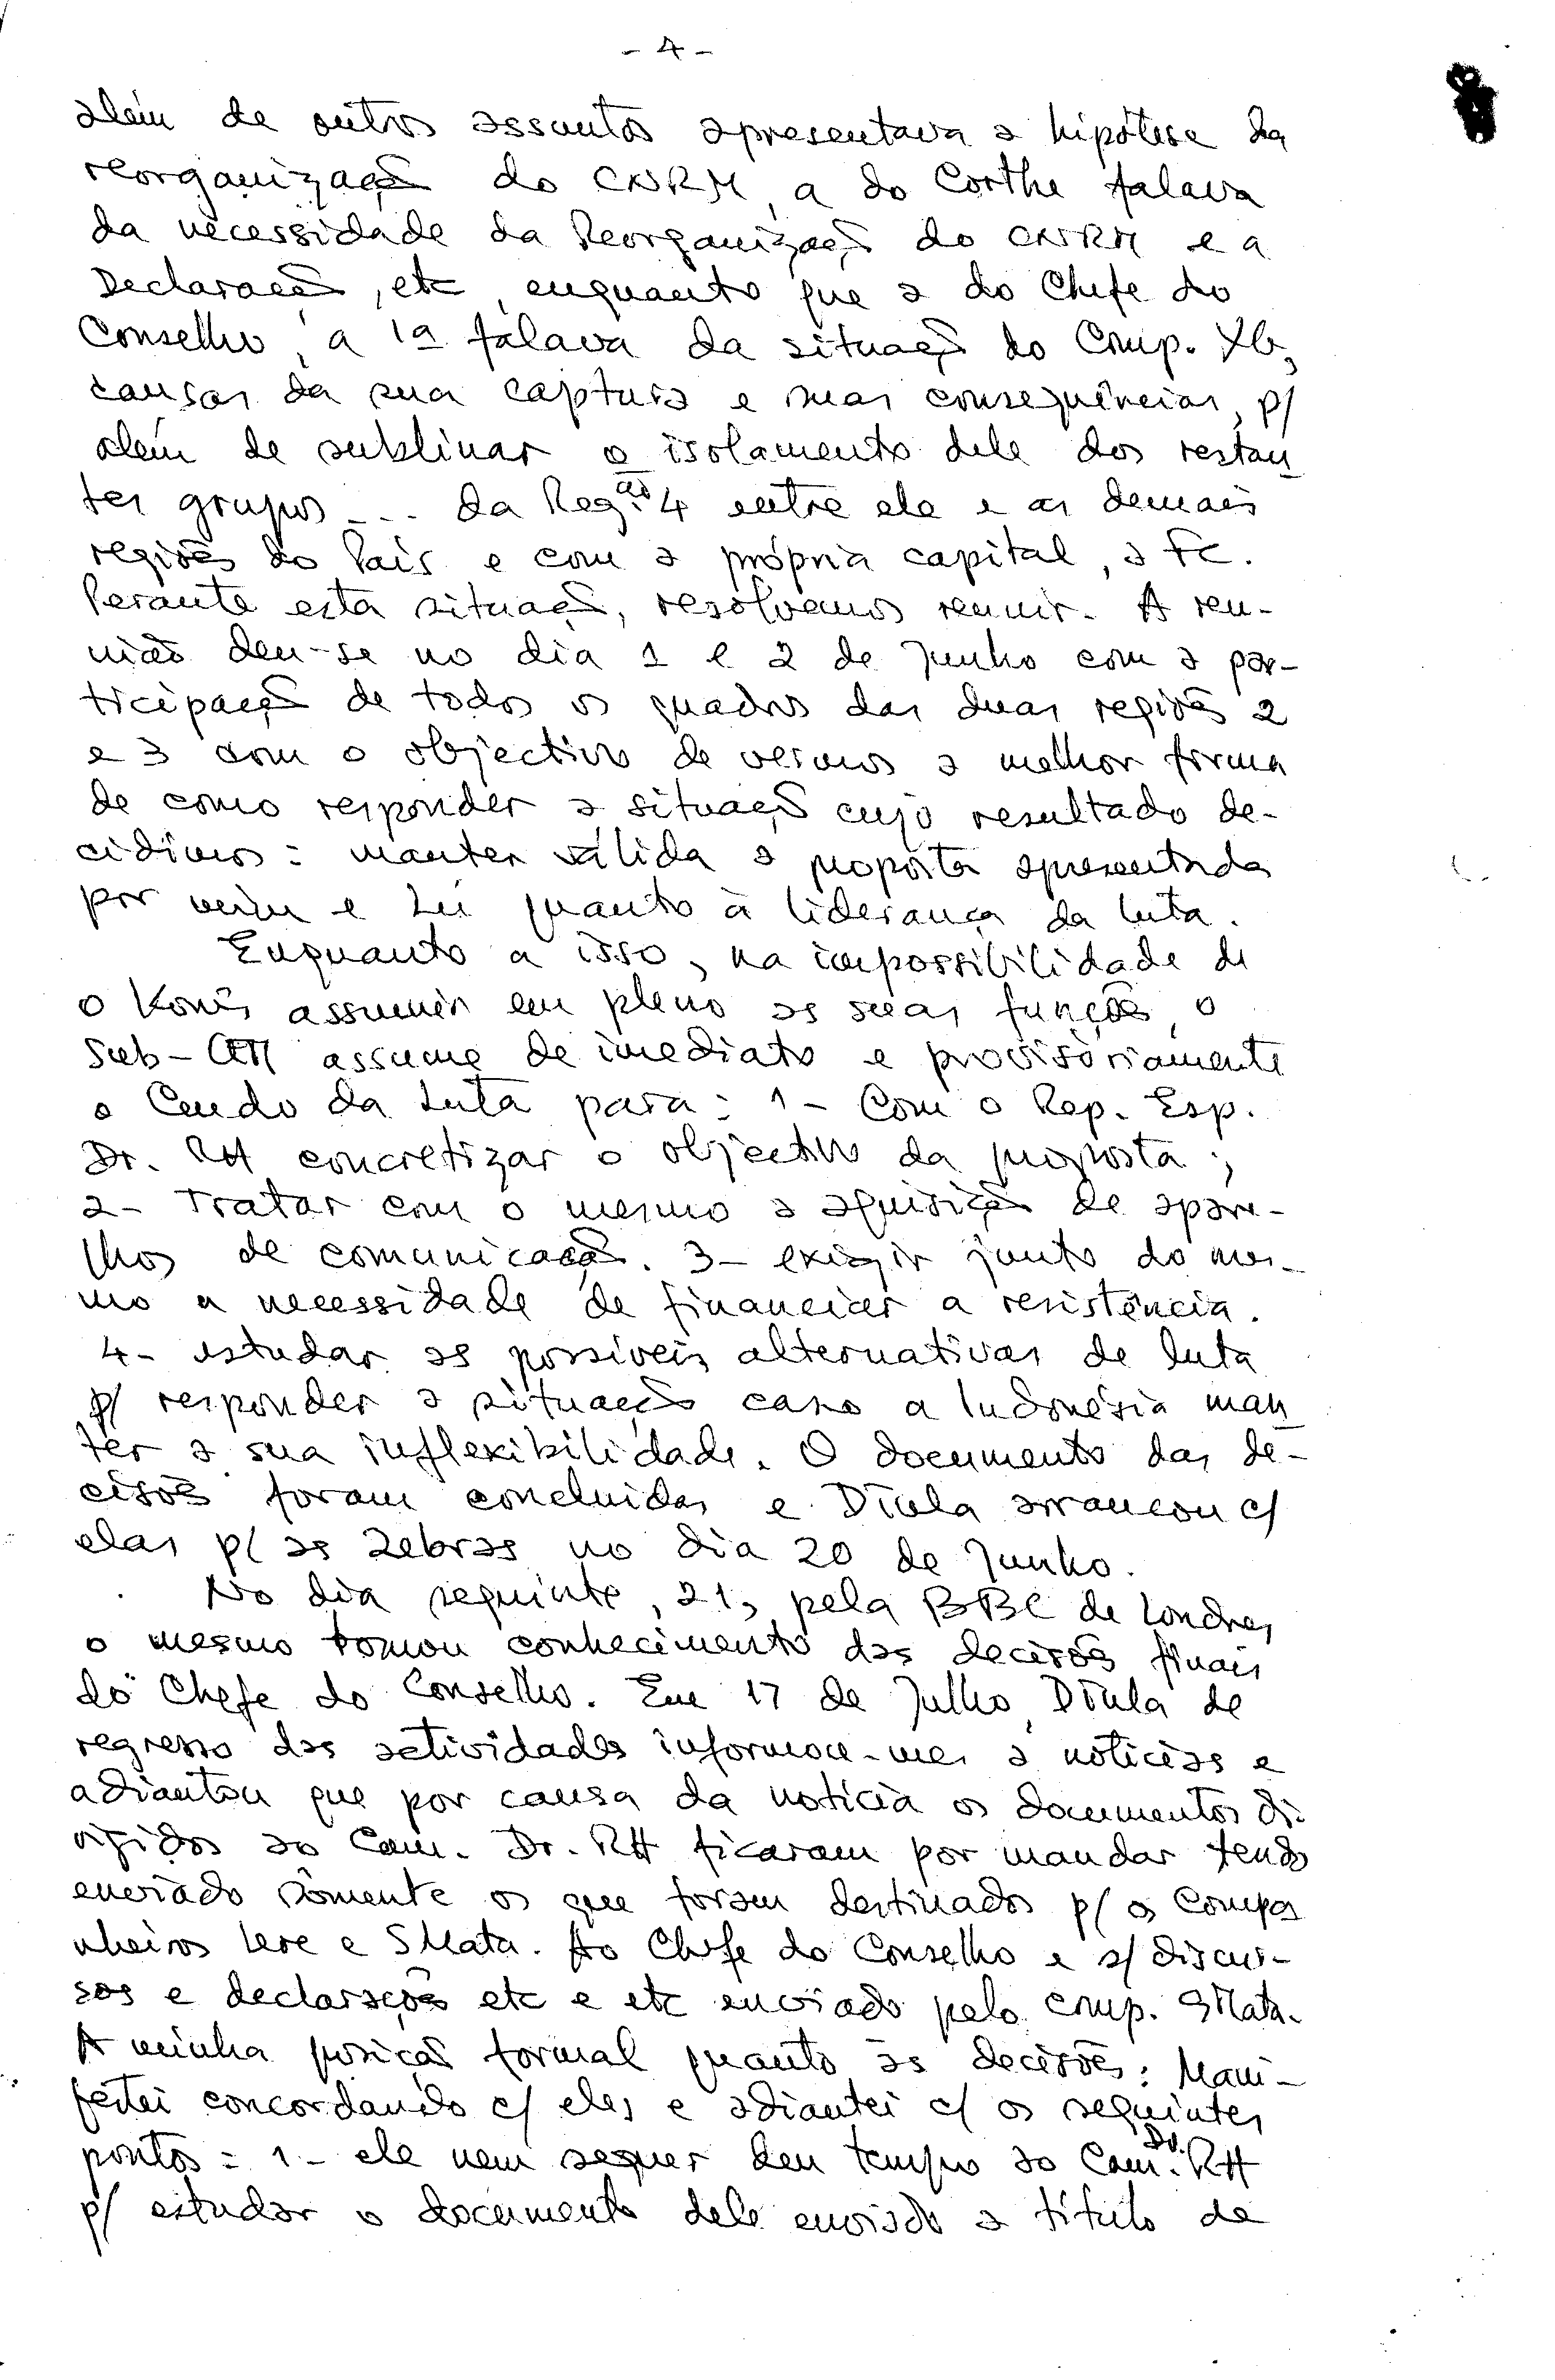 - 4 -
além de outros assuntos apresentava a hipótese da
reorganização do CNRM, a do Corthe falava
da necessidade da Reorganização do CNRM e a
Declaração, etc, enquanto que a do Chefe do
Conselho, a 1ª falava da situação do Comp. Xb,
causas da sua captura e suas consequências, p/
além de sublinar o isolamento dele dos restan
tes grupos ... da Reg. 4 entre ela e as demais
regiões do País e com a própria capital, a FC.
Perante esta situação, resolvemos reunir. A reu-
nião deu-se no dia 1 e 2 de Junho com a par-
ticipação de todos os quadros das duas regiões 2
e 3 com o objectivo de vermos a melhor forma
de como responder a situação cujo resultado de-
cidimos: manter válida a proposta apresentada
por mim e Lu quanto à liderança da luta.
Enquanto a isso, na impossibilidade de
o Konis assumir em pleno as suas funções, o
Sub-CEM assume de imediato e provisoriamente
o Cmdo da Luta para: 1- Com o Rep. Esp.
Dr. RH concretizar o objectivo da proposta;
2- Tratar com o mesmo a aquisição de apare-
lhos de comunicação. 3- exigir junto do mes-
mo a necessidade de financiar a resistência.
4- estudar as possíveis alternativas de luta
p/ responder a situação caso a Indonésia man
ter a sua inflexibilidade. O documento das de-
cisões foram concluidas e Dtula arrancou c/
elas p/ as Zebras no dia 20 de Junho.
No dia seguinte, 21, pela BBC de Londres
o mesmo tomou conhecimento das decisões finais
do Chefe do Conselho. Em 17 de Julho, Dtula de
regresso das actividades informou-me a notícias e
adiantou que por causa da notícia os documentos di
rigidos ao Cam. Dr. RH ficaram por mandar tendo
enviado sòmente os que foram destinados p/ os Compa
nheiros Lere e SMata. Ao Chefe do Conselho e s/ discur-
sos e declarações etc e etc enviado pelo comp. SMata.
A minha posição formal quanto às decisões: Mani-
festei concordando c/ eles e adiantei c/ os seguintes
pontos: 1- ele nem sequer deu tempo ao Cam. Dr. RH
p/ estudar o documento dele enviado a título de